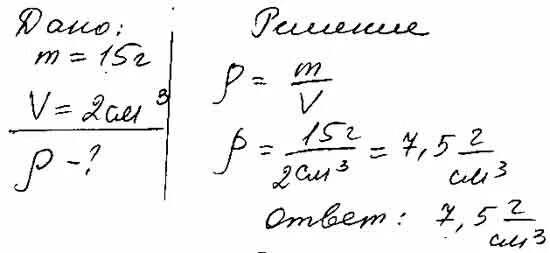 Дано:
m = 15г
V = 2см³
ρ - ?
Решение
ρ = m/V
ρ = 15г/2см³ = 7,5 г/см³
Ответ: 7,5 г/см³